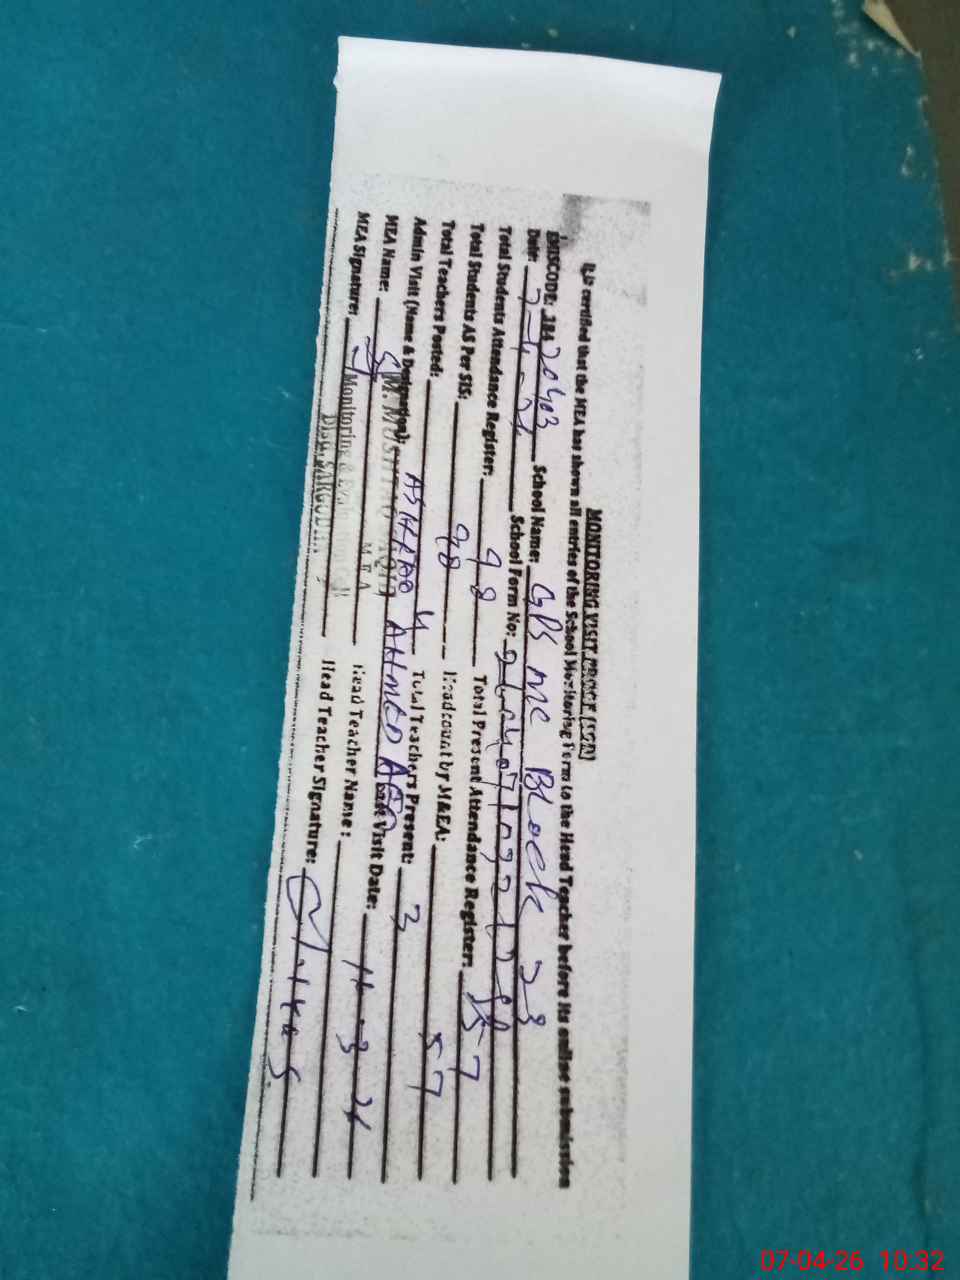 MONITORING VISIT PROOF (SOA)
It is certified that the MEA has shown all entries of the School Monitoring Form to the Head Teacher before its online submission
EMISCODE: 38420403 School Name: GPS MC Block 23
Date: 7-4-26 School Form No:
Total Students Attendance Register: 98 Total Present Attendance Register: 57
Total Students AS Per SIS: 98 Headcount by M&EA: 57
Total Teachers Posted: 4 Total Teachers Present: 3
Admin Visit (Name & Designation): ASHFAQ AHMED AEO Last Visit Date: 11-3-26
MEA Name: Head Teacher Name:
MEA Signature: Head Teacher Signature:
M.E.A
Monitoring &
SARGODHA
07-04-26 10:32